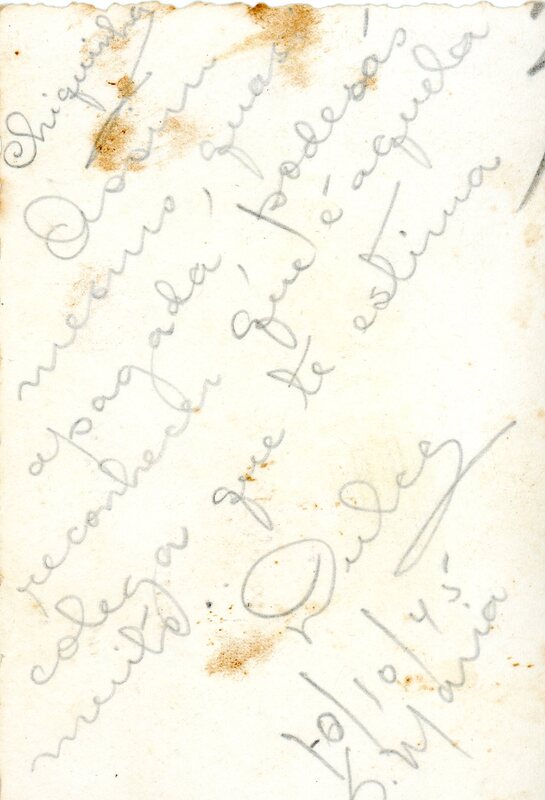 Chiquinha
Assim
mesmo, quasi
apagada, poderás
reconhecer que é aquela
colega que te estima
muito
Dulce
10/10/45
S. Maria